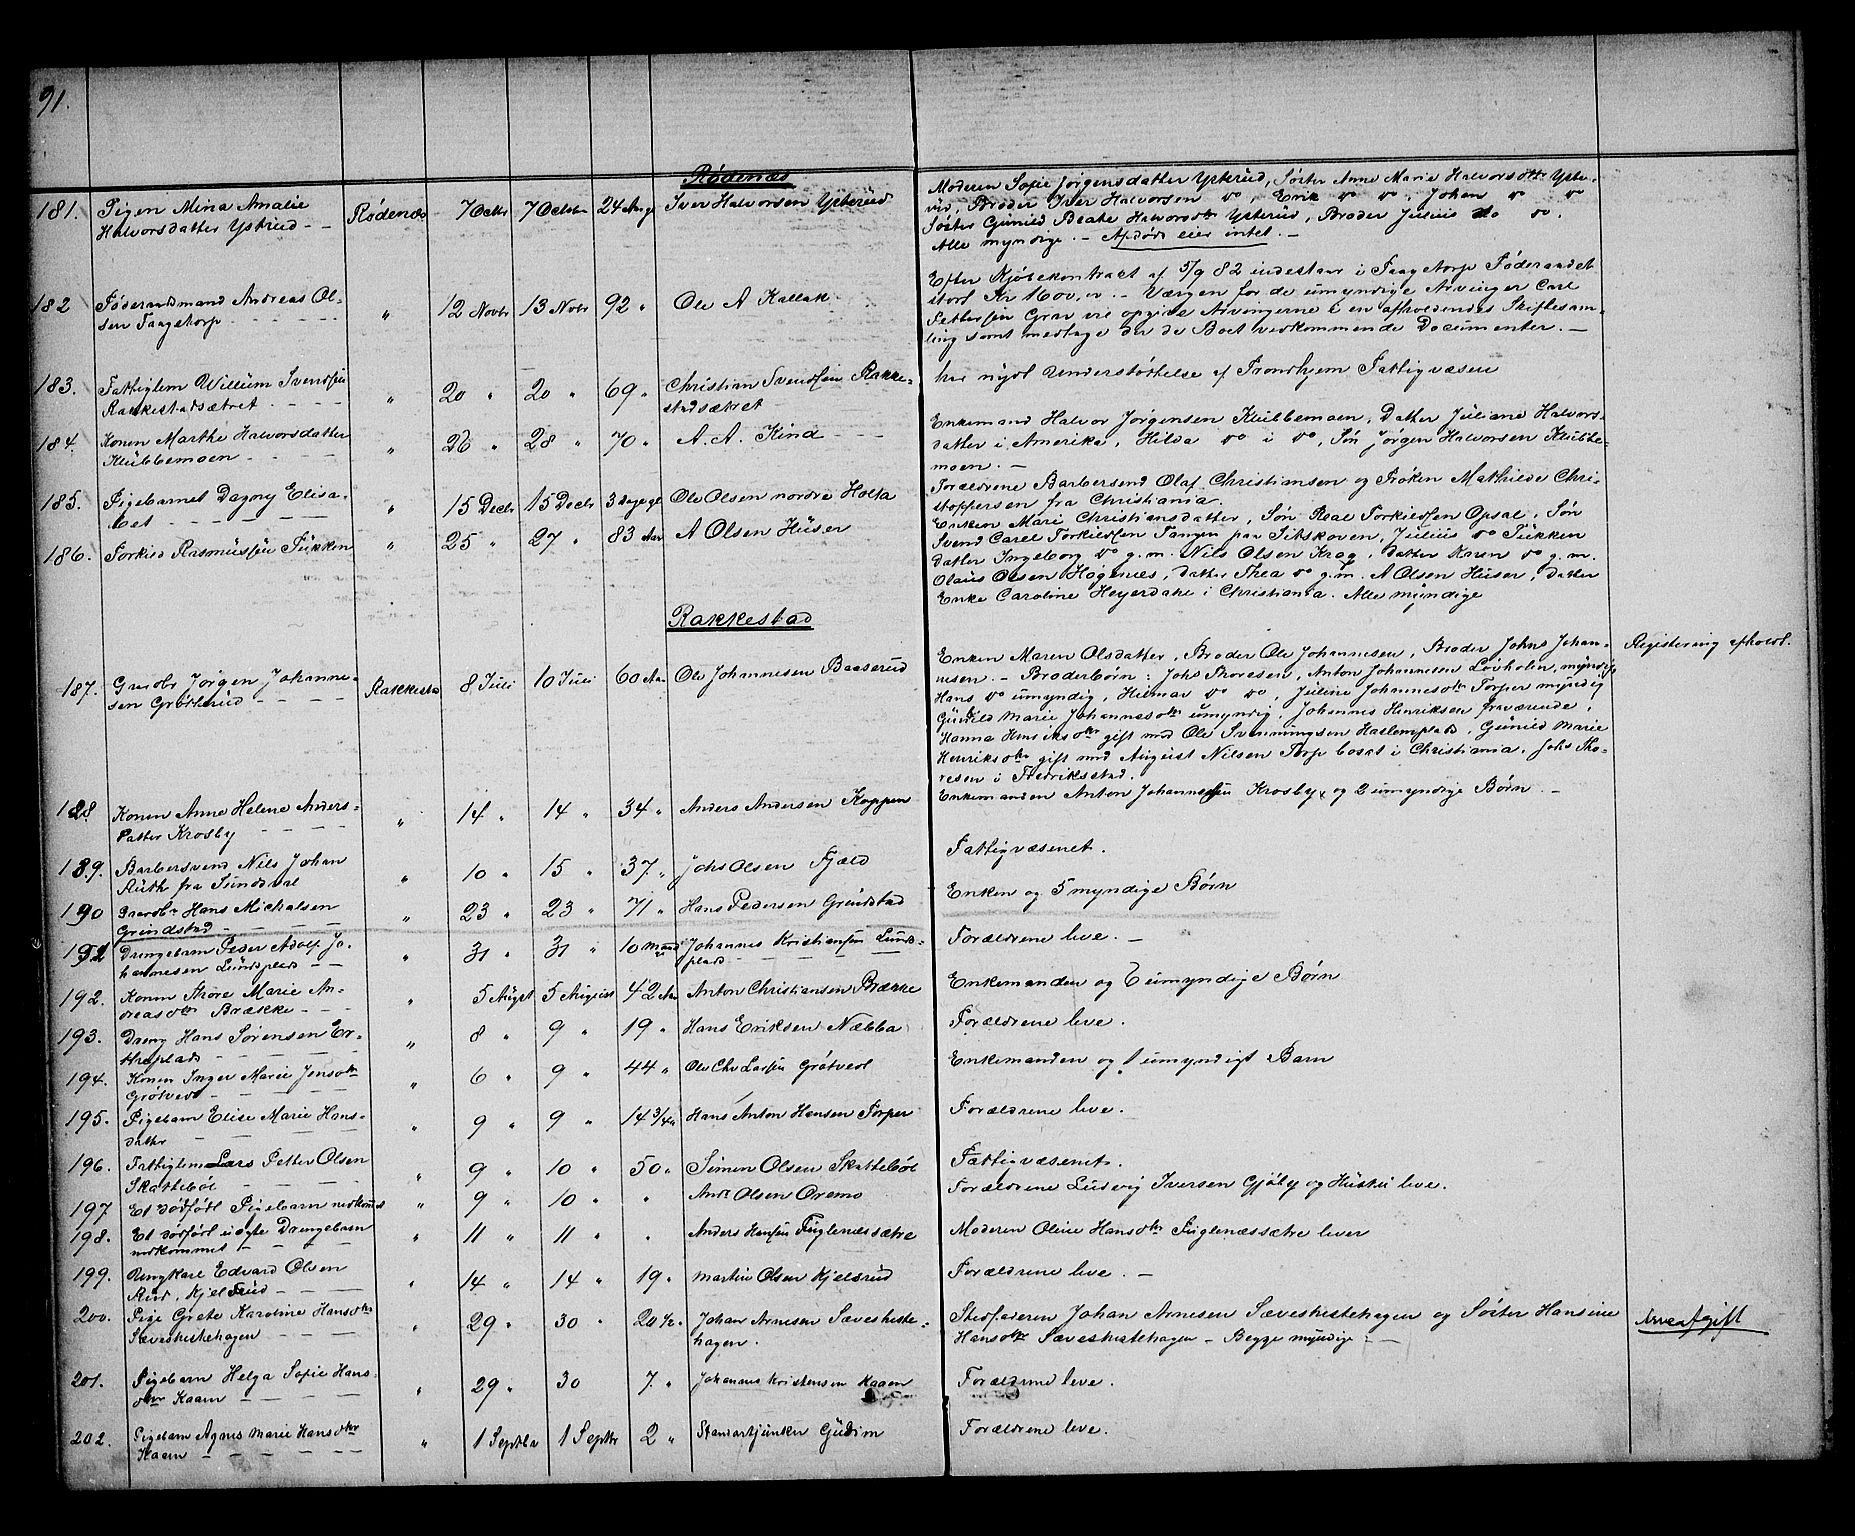 91.
Rødenæs
181. Pigen Mina Amalie
Halvorsdatter Ystrud - - Rødenæs 7 Octbr 7 Octobr 24 Aar gl Iver Halvorsen Ysterud
Moderen Sofie Jørgensdatter Ysterud, Søster Anne Marie Halvorsdttr Yste-
rud, Broder Iver Halvorsen do, Erik do do, Johan do do
Søster Gunild Beate Halvorsdtr Ysterud, Broder Julius do do.
Alle myndige. - Afdøde eier intet. -
182 Føderaadsmand Andreas Ol-
sen Taagetorp - - - - " 12 Novbr 13 Novbr 92 " Ole A Kallak
Efter Kjøbekontract af 5/9 82 indestaar i Taagetorp Føderaadet
stort Kr 1600,00. - Værgen for de umyndige Arvinger Carl
Pettersen Grav vil opgive Arvingerne i en afholdendes Skiftesam-
ling samt medtage der de Boet vedkommende Documenter. -
183. Fattiglem Willum Svendsen
Rakkestadsætret - - - - " 20 " 20 " 69 " Christian Svendsen Rakke-
stadsætret
har nydt Understøttelse af Trondhjem Fattigvæsen
184. Konen Marthe Halvorsdatter
Klubbemoen - - - - " 26 " 28 " 70 " A. A. Kind - -
Enkemand Halvor Jørgensen Klubbemoen, Datter Juliane Halvors-
datter i Amerika, Hilda do i do, Søn Jørgen Halvorsen Klubbe-
moen. -
185. Pigebarnet Dagny Elisa-
bet - - - - - " 15 Decbr 15 Decbr 3 Dage gl Ole Olsen nordre Holta
Forældrene Barbersvend Olaf Christiansen og Frøken Mathilde Chri-
stoppersen fra Christiania.
186. Torkild Rasmussen Tukken " 25 " 27 " 83 Aar A Olsen Huser
Enken Marie Christiansdatter, Søn Real Torkildsen Opsal, Søn
Svend Carel Torkildsen Tangen paa Sitskoven, Julius do Tukken
datter Ingeborg do g. m. Nils Olsen Krog, datter Karen do g. m.
Olaus Olsen Høgenæs, datter Thea do g. m. A Olsen Huser, datter
Enke Caroline Heyerdahl i Christiania. Alle myndige
Rakkestad
187. Gaardbr Jørgen Johanne-
sen Grøtterud - - - - Rakkestad 8 Juli 10 Juli 60 Aar Ole Johannesen Baaserud
Enken Maren Olsdatter, Broder Ole Johannesen, Broder Johs Johan-
nesen. - Broderbørn: Johs Thoresen, Anton Johannesen Løvholen, myndig
Hans do umyndig, Hilmar do do, Juline Johannesdtr Torper myndig
Gunild Marie Johannesdtr umyndig, Johannes Henriksen fraværende,
Hanna Henriksdtr gift med Ole Svenningsen Haslemplads, Gunild Marie
Henriksdtr gift med August Nilsen Torp bosat i Christiania. Johs Tho-
resen i Fredriksstad.
Registrering afholdt.
188. Konen Anne Helene Anders-
datter Krosby - - - - " 14 " 14 " 34 " Anders Andersen Koppen
Enkemanden Anton Johannesen Krosby, og 2 umyndige Børn. -
189. Barbersvend Nils Johan
Ruth fra Sundsval " 10 " 15 " 37 " Johs Olsen Fjæld
Fattigvæsenet.
190 Gaardbr Hans Michalsen
Grindstad - - - - " 23 " 23 " 71 " Hans Pedersen Grindstad
Enken og 5 myndige Børn
191 Drengebarn Peder Adolf Jo-
hannesen Lundsplads - - " 31 " 31 " 10 Maaneder Johannes Kristiansen Lunds-
plads - - - -
Forældrene leve. -
192. Konen Thore Marie An-
dreasdtr Brække - - - " 5 August 5 August 42 Aar Anton Christiansen Brække
Enkemanden og 6 umyndige Børn
193. Dreng Hans Sørensen Er-
theplads - - - - " 8 " 9 " 19 " Hans Eriksen Næbba
Forældrene leve.
194. Konen Inger Marie Jensdtr
Grøtvedt - - - - " 6 " 9 " 44 " Ole Chr Larsen Grøtvedt
Enkemanden og 1 umyndigt Barn
195. Pigebarn Elise Marie Hans-
datter - - - - " 9 " 9 " 14 3/4 " Hans Anton Hansen Torper
Forældrene leve.
196. Fattiglem Lars Petter Olsen
Skattebøl - - - - " 9 " 10 " 50 " Simen Olsen Skattebøl
Fattigvæsenet.
197 Et dødfødt Pigebarn nedkommet " 9 " 10 " " Andr. Olsen Oremo
Forældrene Ludvig Iversen Gjølby og Hustru leve.
198. Et dødfødt uægte Drengebarn
nedkommet - - - - " 11 " 11 " " Anders Hansen Fuglenæssætre
Moderen Oline Hansdtr Fuglenæssætre lever
199. Ungkarl Edvard Olsen
Rud, Kjelsrud - - - - " 14 " 14 " 19 " Martin Olsen Kjelsrud
Forældrene leve. -
200. Pige Grete Karoline Hansdtr
Sæveskistehagen - - - " 29 " 30 " 20 1/2 " Johan Arnesen Sæveskiste-
hagen.
Stedfaderen Johan Arnesen Sæveskistehagen og Søster Hansine
Hansdtr Sæveskistehagen - Begge myndige -
Arveafgift
201. Pigebarn Helga Sofie Hans-
dtr Kaam - - - - " 29 " 30 7 " Johannes Kristensen Kaam
Forældrene leve.
202. Pigebarn Agnes Marie Hansdtr
Kaam - - - - " 1 Septbr 1 Septbr 2 " Standartjunker Gudim
Forældrene leve.